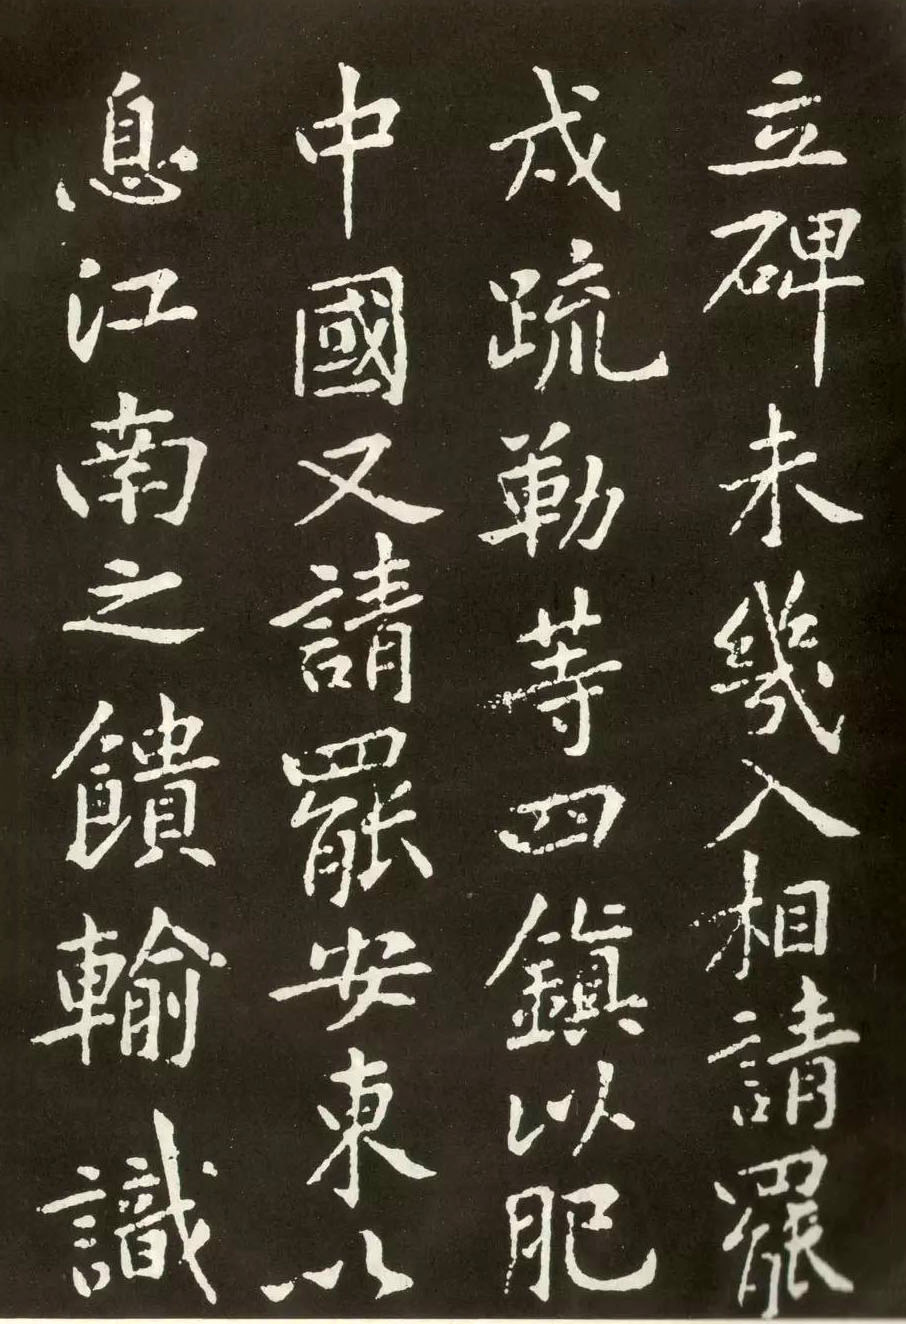 立碑未幾入相請罷
戍疏勒等四鎮以肥
中國又請罷安東以
息江南之饋輸識